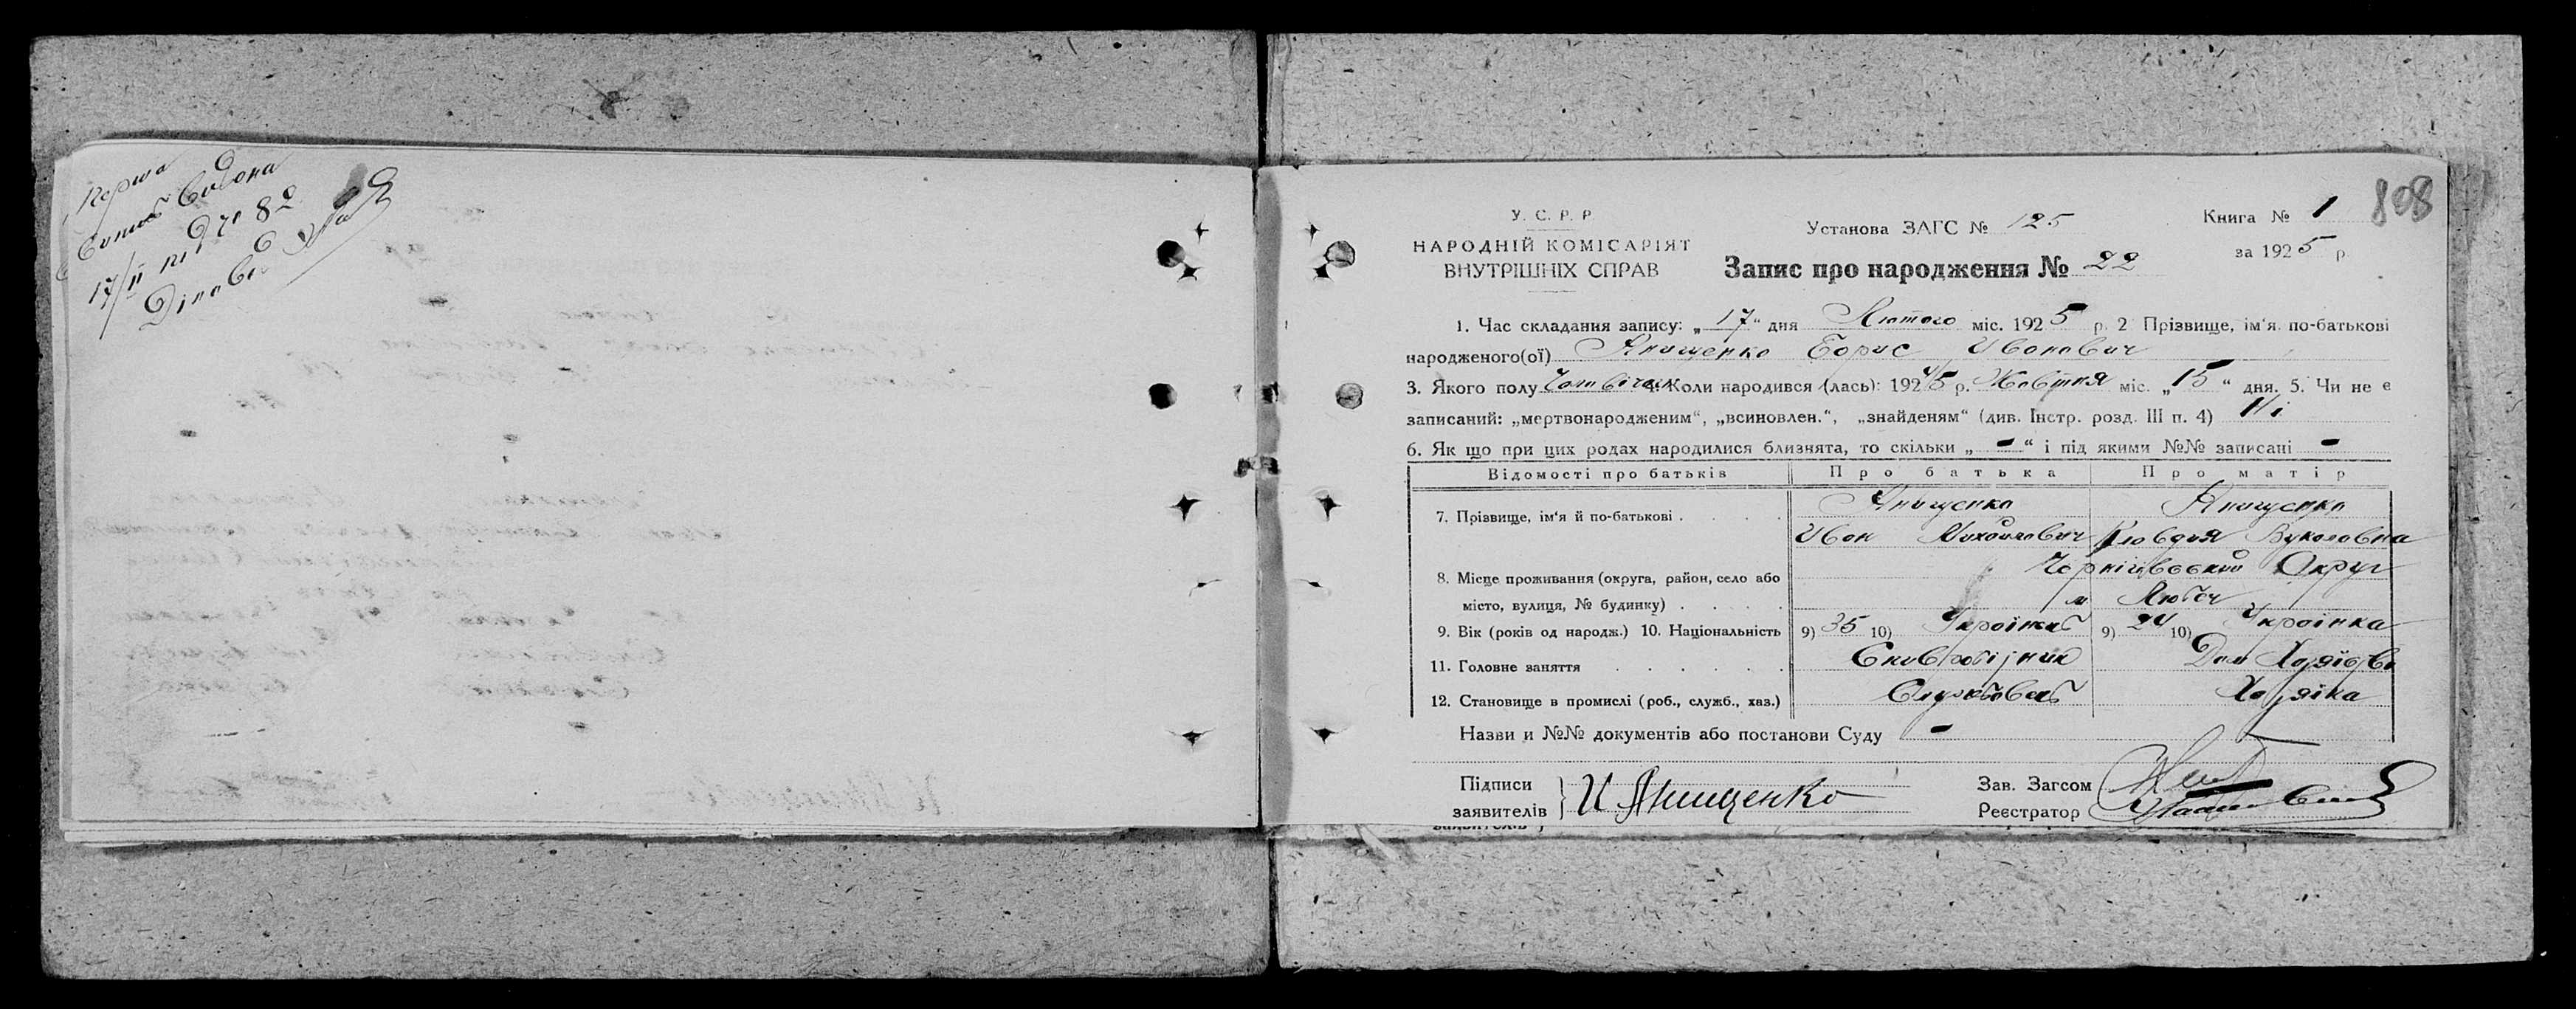 Перша
Видана
17/II
808
У. С. Р. Р.
НАРОДНІЙ КОМІСАРІЯТ
ВНУТРІШНІХ СПРАВ
Установа ЗАГС № 125
Запис про народження № 22
Книга № 1
за 1925 р
1. Час складання запису: „17“ дня Лютого міс. 1925 р. 2 Прізвище, ім‘я по-батькові
народженого(ої) Янищенко Борис Иванович
3. Якого полу Чоловічан 4. Коли народився (лась): 1925 р. Жовтня міс. „15“ дня. 5. Чи не є
записаний: „мертвонародженим“, „всиновлен.“, „знайденям“ (див. Інстр. розд. III п. 4) Ні
6. Як що при цих родах народилися близнята, то скільки „-“ і під якими №№ записані -
Відомості про батьків Про батька Про матір
7. Прізвище, ім‘я й по-батькові . . . . Янищенко Янищенко
Иван Михайлович Клавдия Вуколовна
8. Місце проживання (округа, район, село або Чернігівський Округ
місто, вулиця, № будинку) . . . . м Любеч
9. Вік (років од народж.) 10. Національність 9) 35 10) Українец 9) 24 10) Українка
11. Головне заняття . . . . . Дом Хозяїство
12. Становище в промислі (роб., служб., хаз.) Службовец Хозяїка
Назви и №№ документів або постанови Суду -
Підписи
заявителів } И Янищенко
Зав. Загсом
Реєстратор